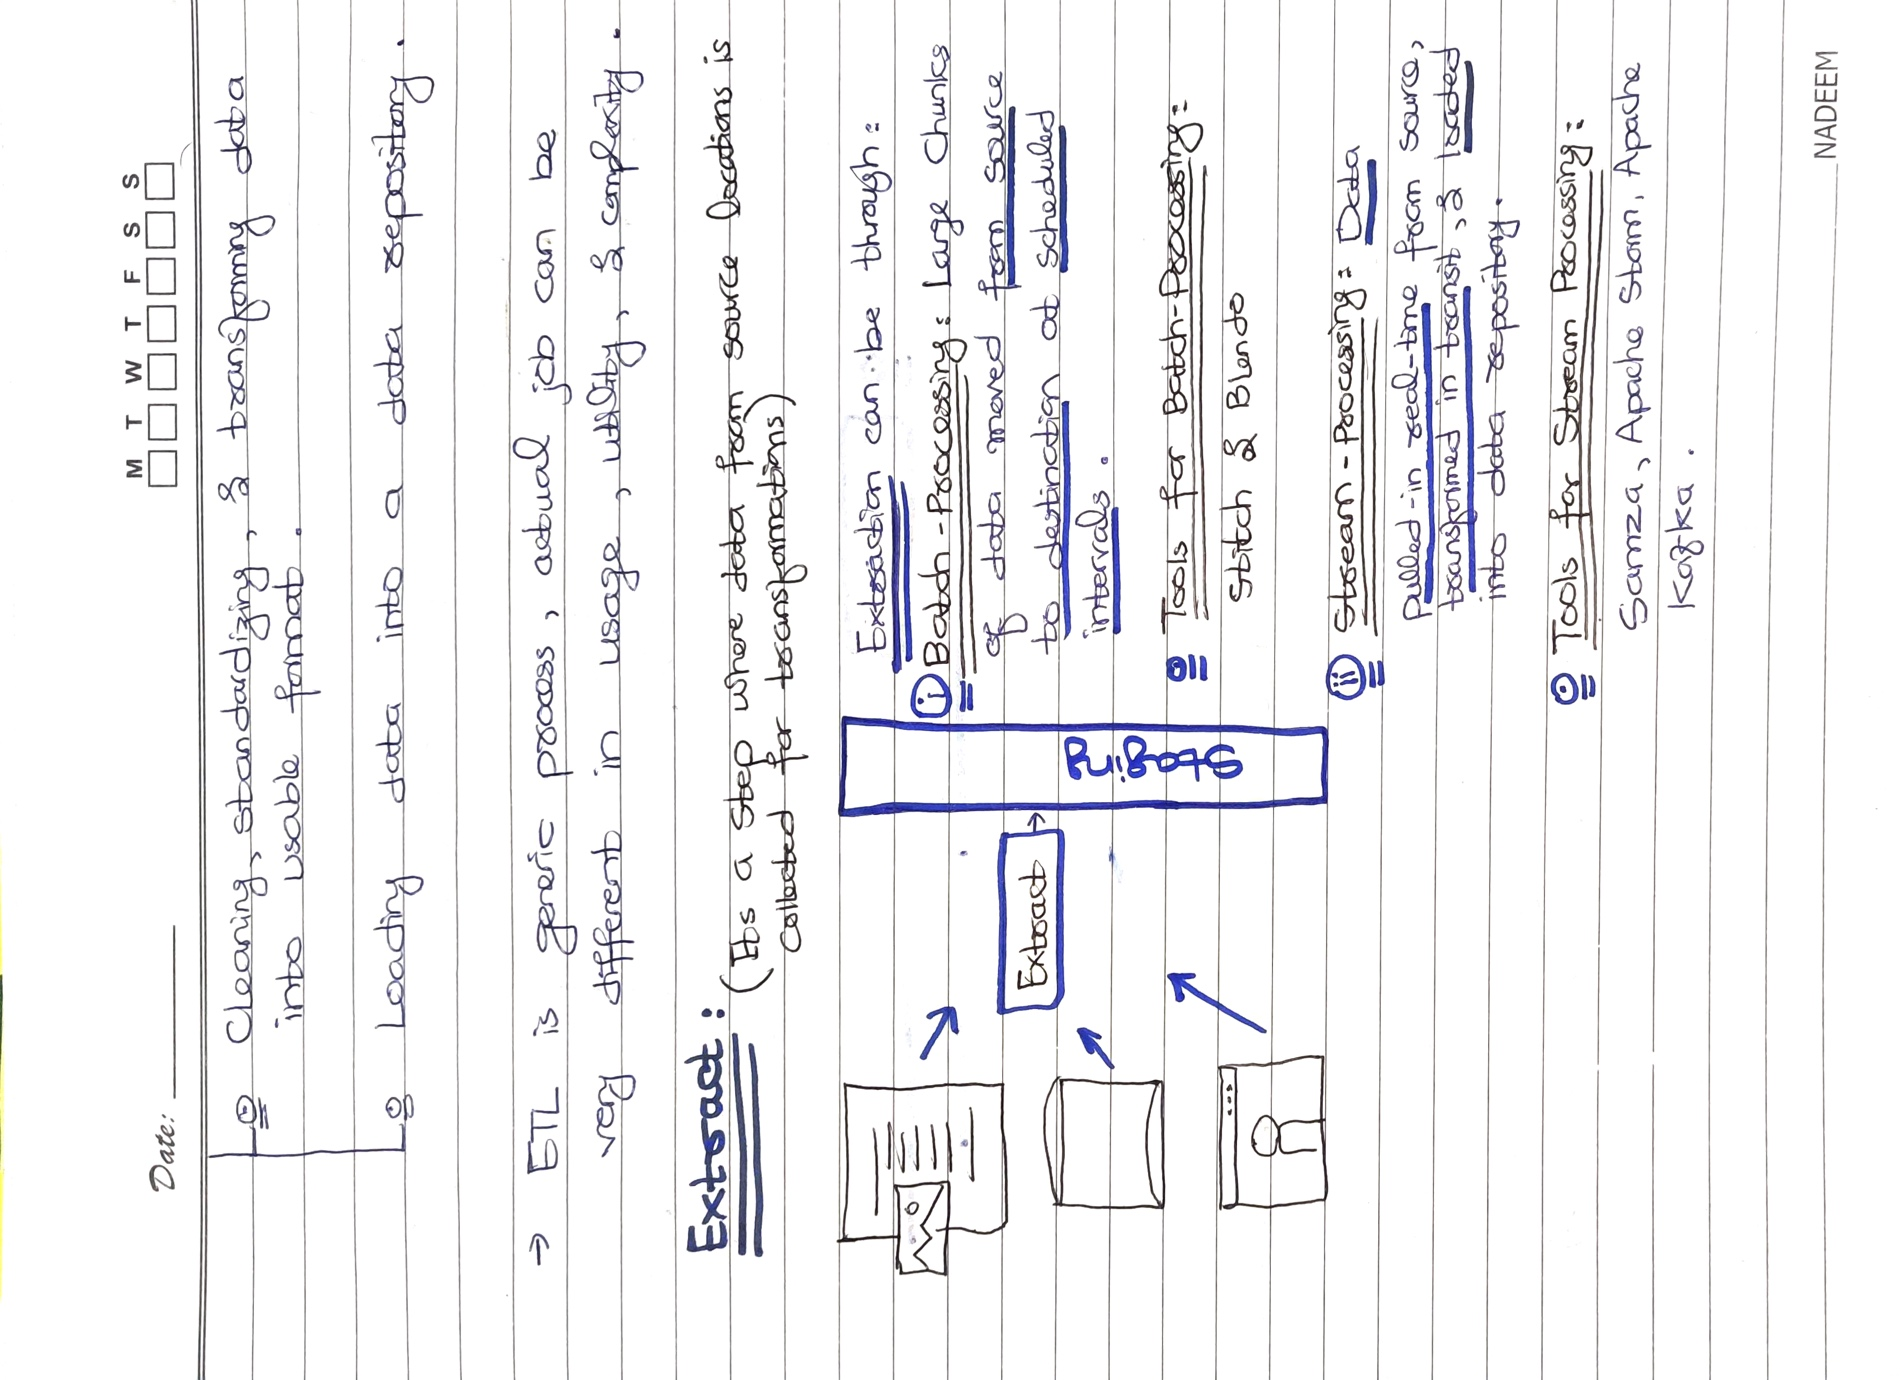 Date:
M T W T F S S
Cleaning, standardizing, & transforming data
into usable format.
Loading data into a data repository.
→ ETL is generic process, actual job can be
very different in usage, utility, & complexity.
Extract: (Its a Step where data from source locations is
collected for transformations)
Extraction can be through:
i Batch-Processing: Large Chunks
of data moved from source
to destination at scheduled
intervals.
Tools for Batch-Processing:
Stitch & Blendo
ii Stream-Processing: Data
pulled-in real-time from source,
transformed in transit, & loaded
into data repository.
Tools for Stream Processing:
Samza, Apache Storm, Apache
Kafka.
Extract →
Staging
NADEEM